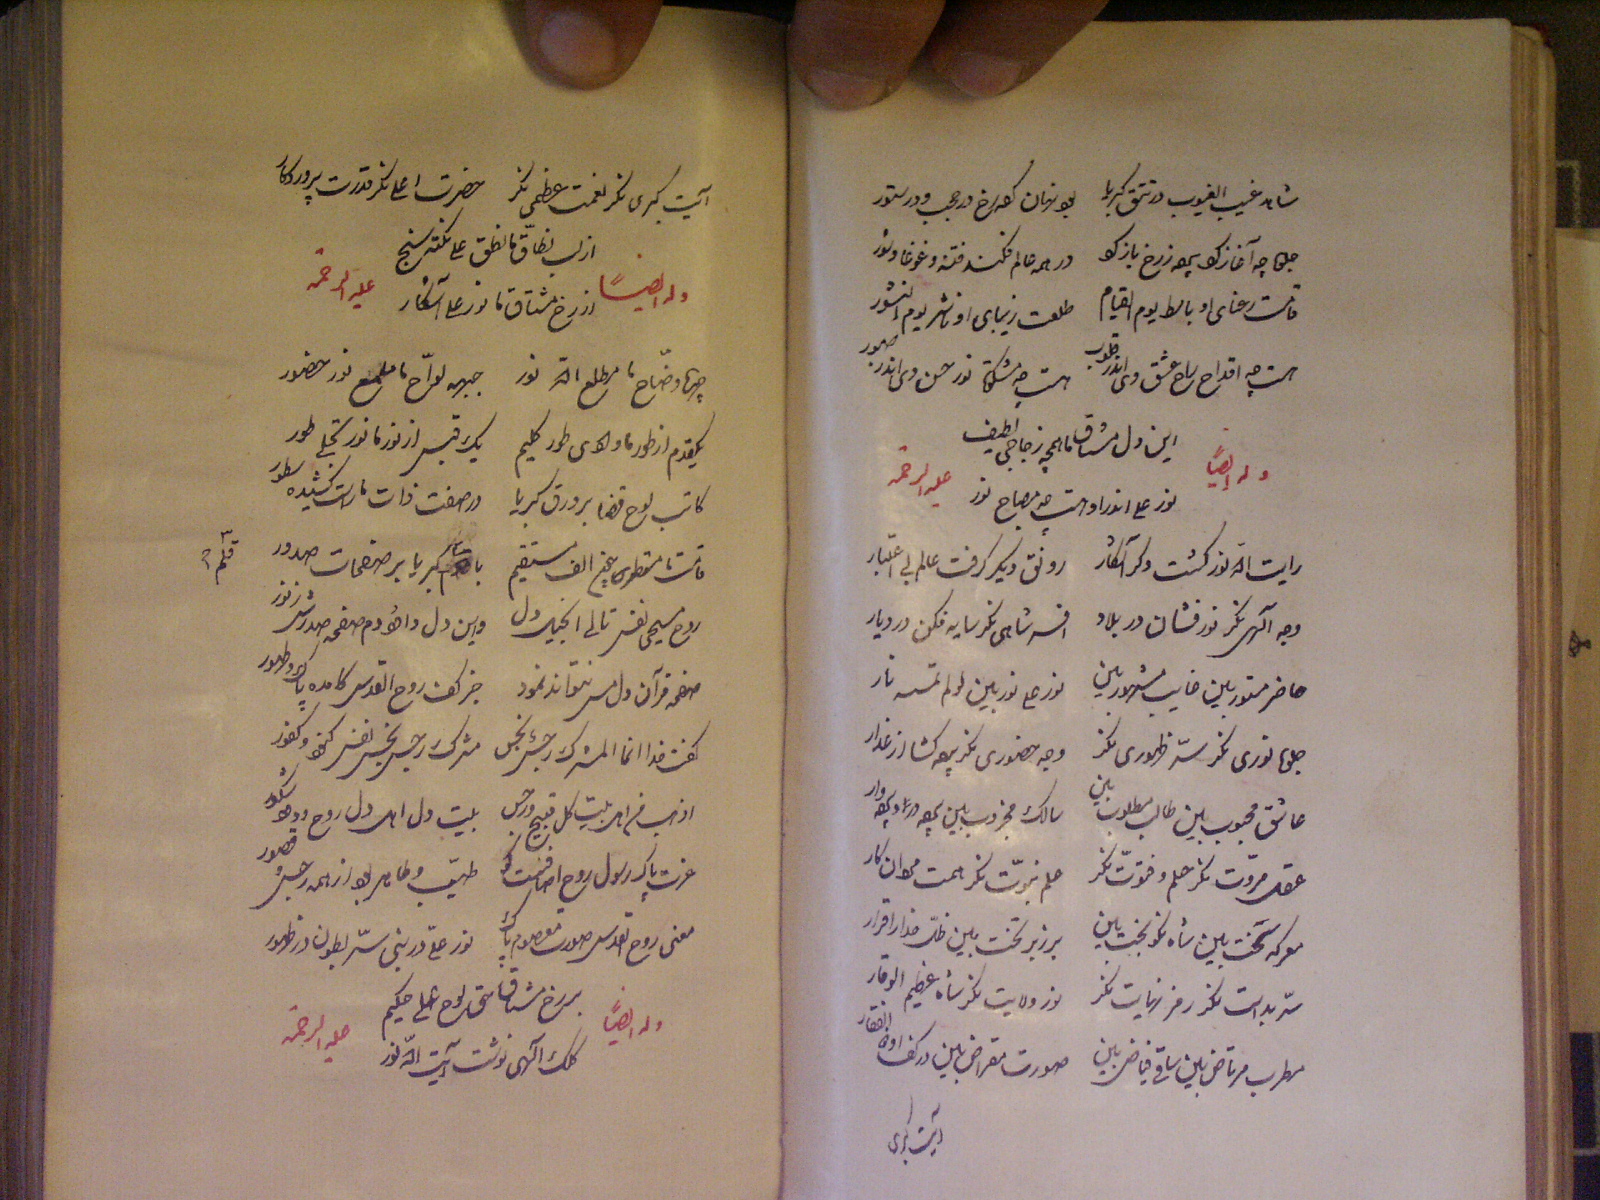 شاهد غیب الغیوب در تتق کبریا بود نهان کرد رخ در حجب و در ستور
جلوه چه آغاز کرد پرده ز رخ باز کرد در همه عالم فکند فتنه و غوغا و شور
قامت رعنای او باسط یوم القیام طلعت زیبای او ناشر یوم النشور
هست چه اقداح راح عشق وی اندر قلوب هست چه مشکوة نور حسن وی اندر صدور
این دل مشتاق ما همچه زجاجی لطیف
وله ایضاً علیه الرحمة
نور علی اندر او هست چه مصباح نور
رایت الله نور گشت دگر آشکار رونق دیگر گرفت عالم بی اعتبار
وجه آلهی نگر نور فشان در بلاد افسر شاهی نگر سایه فکن در دیار
حاضر مستور بین غایب مشهور بین نور علی نور بین لو لم تمسسه نار
جلوه نوری نگر سرّ ظهوری نگر وجه حضوری نگر پرده گشا از عذار
عاشق محبوب بین طالب مطلوب بین سالک مجذوب بین پرده در و پرده دار
عقل مروّت نگر حلم و فتوّت نگر علم نبوّت نگر همت مردان کار
معرکه سخت بین شاه نکو بخت بین بر زبر تخت بین ظلّ خدا را قرار
سرّ بدایت نگر رمز نهایت نگر نور ولایت نگر شاه عظیم الوقار
مطرب مرتاض بین ساقی فیاض بین صورت مقراض بین در کف او ذوالفقار
آیت کبری
آیت کبری نگر نعمت عظمی نگر حضرت اعلی نگر قدرت پروردگار
از لب نطاق ما نطق علی نکته سنج
وله ایضاً علیه الرحمة
از رخ مشتاق ما نور علی آشکار
چهره وضّاح ما مطلع الله نور جبهه لوّاح ما ملمع نور حضور
یکقدم از طور ما وادی طور کلیم یک قبس از نور ما نور تجلی طور
کاتب لوح قضا بر ورق کبریا در صفت ذات ما راست کشیده سطور
قامت ما منطوی همچه الف مستقیم با کبریا بر صفحات صدور
قلم
روح مسیحی نفس تالی انجیل دل وین دل داود دم صفحه صدرش زبور
صفحه قرآن دل مس نتواند نمود جز کف روح القدس کامده پاک و طهور
گفت خدا انما المشرک رجس نجس مشرک رجس نجس نفس کنود و کفور
اذهب عن اهل بیت کل قبیح و رجس بیت دل اهل دل روح ودود شکور
عترت پاک رسول روح اضافیست کو طیّب و طاهر بود از همه رجس و قصور
معنی روح القدس صورت معصوم پاک نور علی در نبی سرّ بطون در ظهور
بر رخ مشتاق حق لوح علی حکیم
وله ایضاً علیه الرحمة
کلک آلهی نوشت آیت الله نور